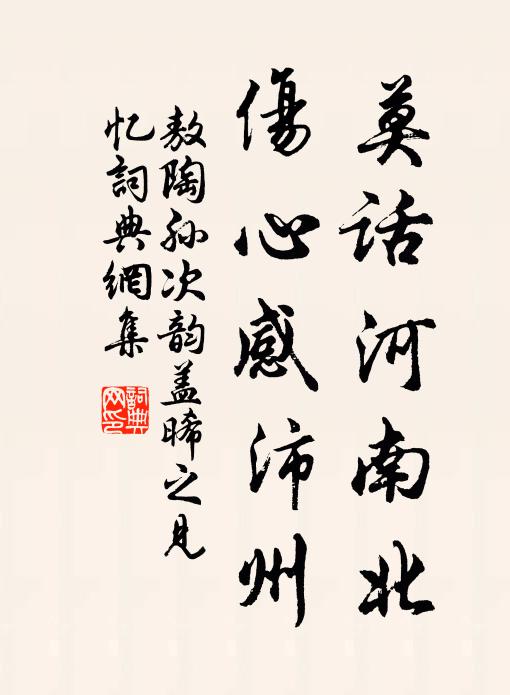 莫话河南北
傷心感沛州
敖陶孙次韵盖晞之見
忆詞典網集
詞典
网印